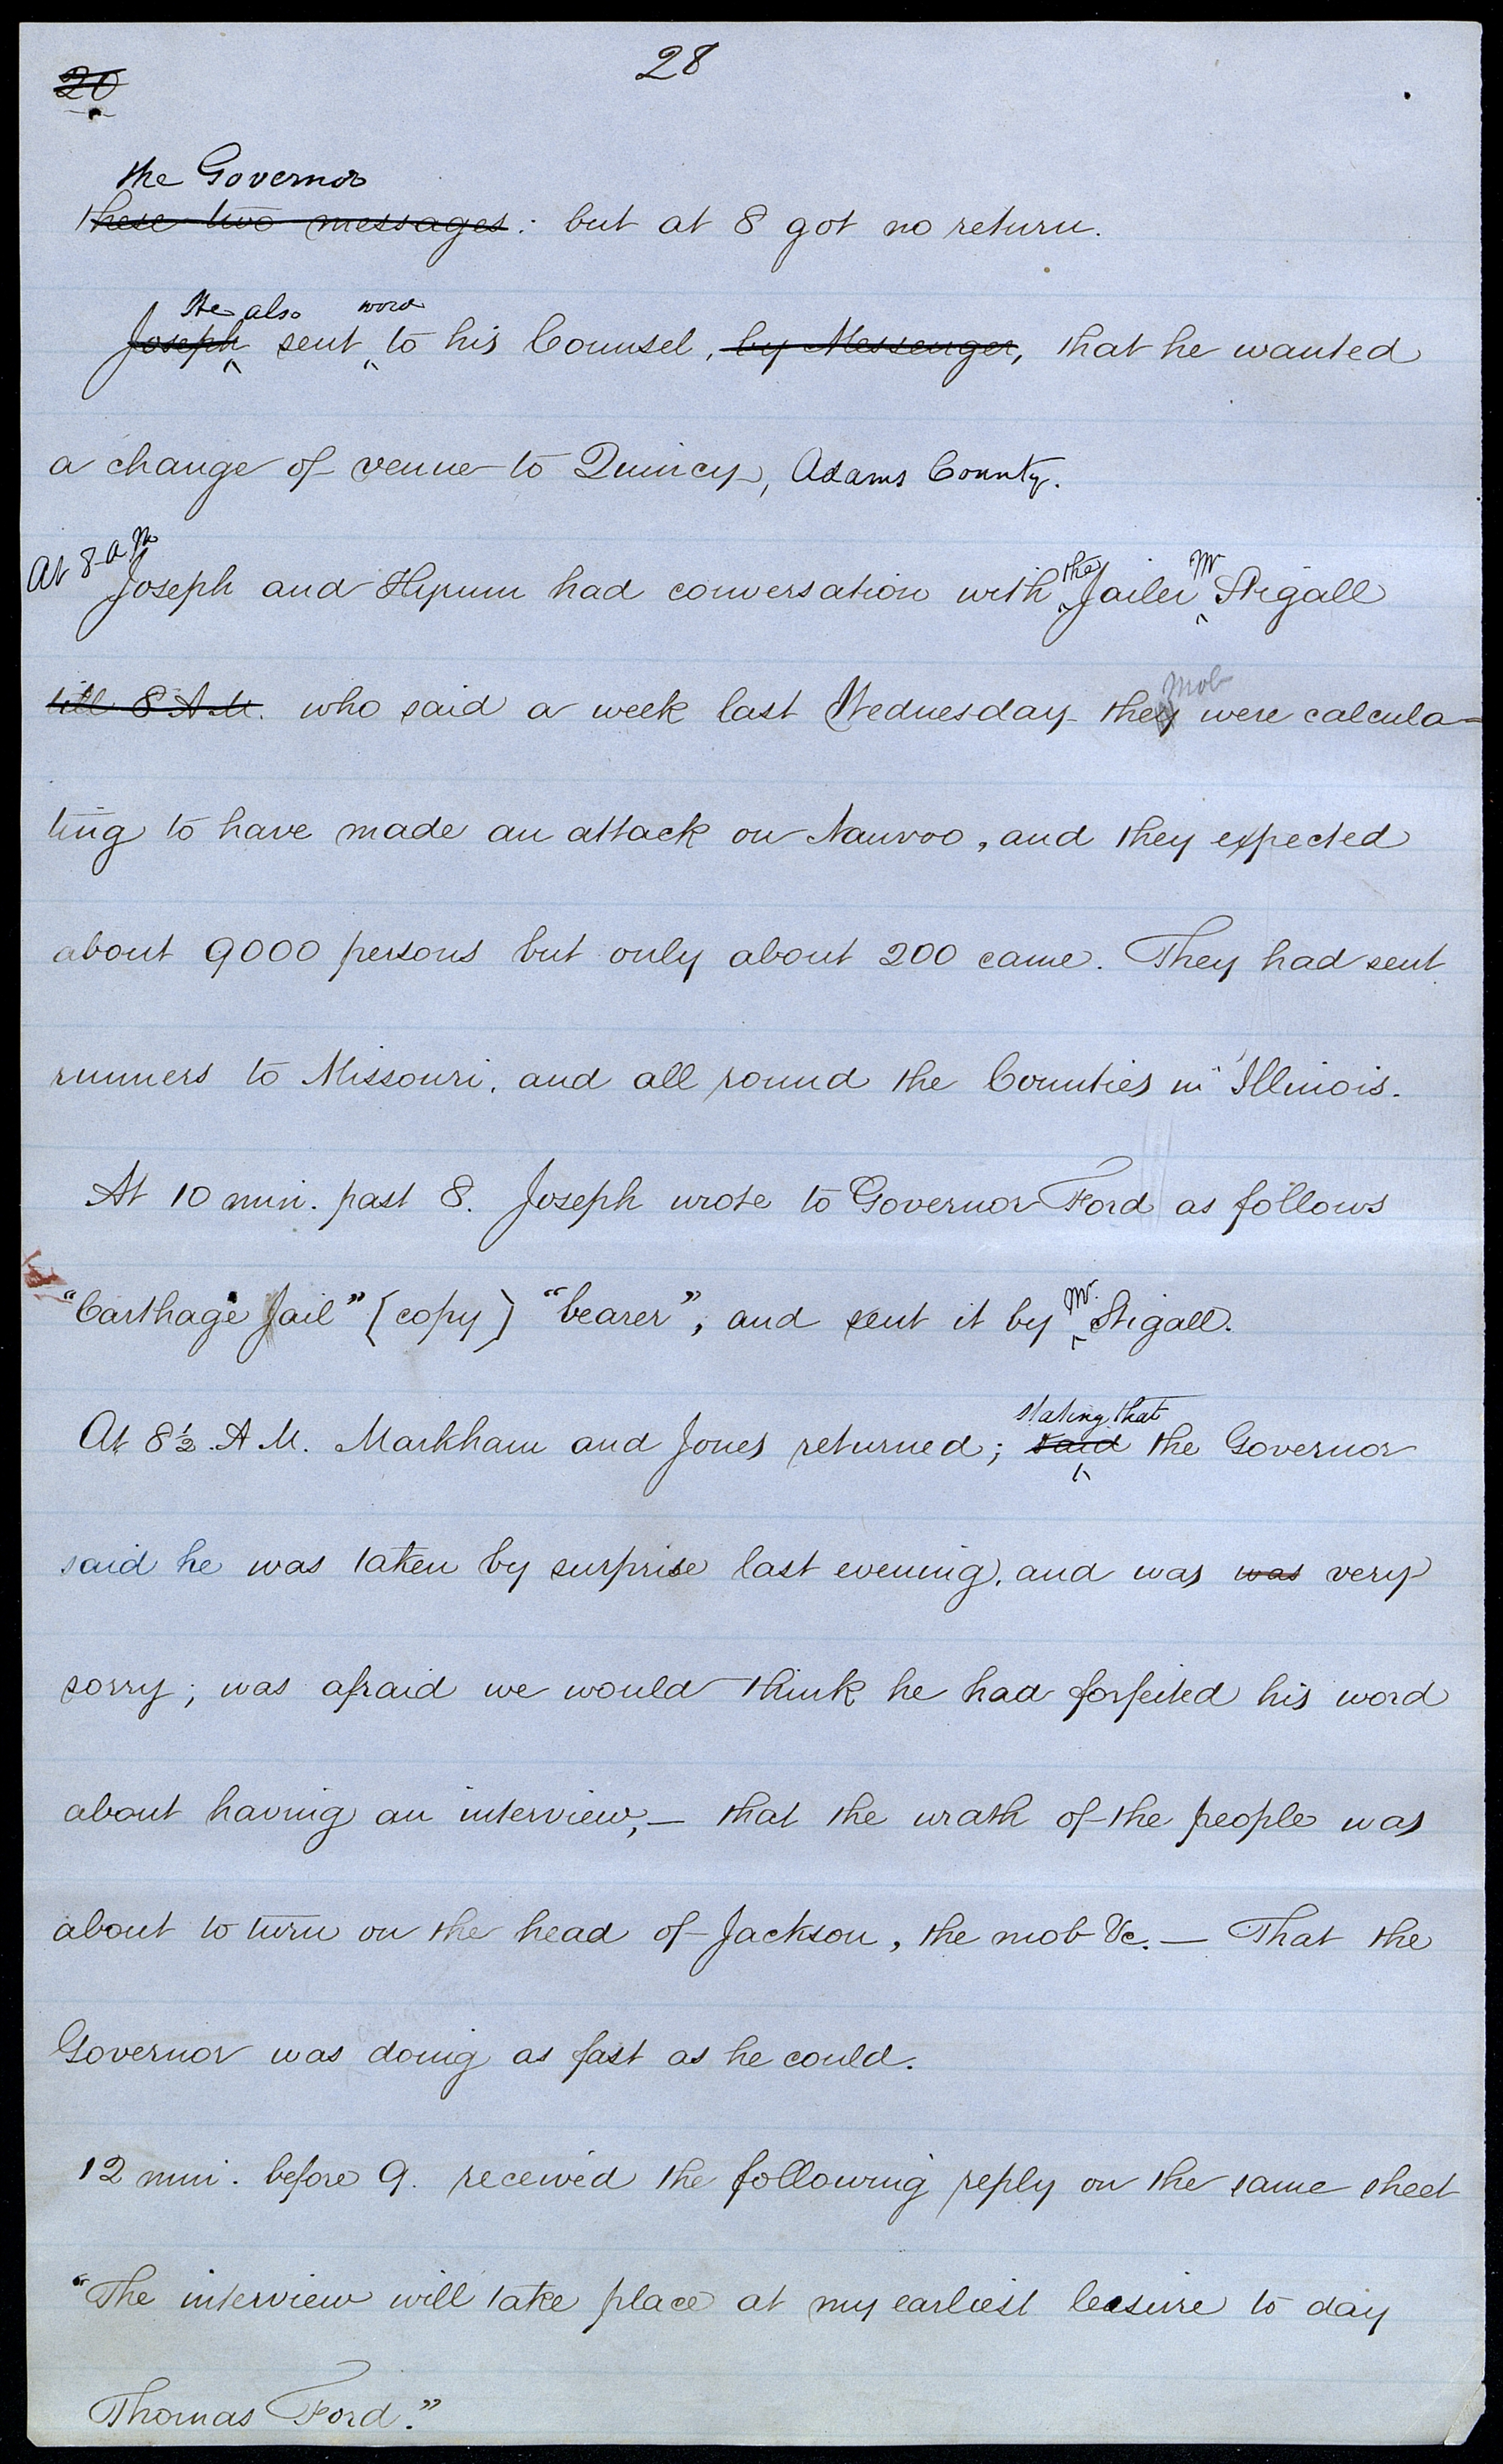 28
20
the Governor
these two messages: but at 8 got no return.
He also word
Joseph sent to his Counsel, by Messenger, that he wanted
a change of venue to Quincy, Adams County.
At 8 a m
the Mr
Joseph and Hyrum had conversation with Jailer Stigall
mob
till 8 A.M. who said a week last Wednesday they were calcula=
ting to have made an attack on Nauvoo, and they expected
about 9000 persons but only about 200 came. They had sent
runners to Missouri, and all round the Counties in Illinois.
At 10 min. past 8. Joseph wrote to Governor Ford as follows
Mr.
"Carthage Jail" [copy] "bearer", and sent it by Stigall.
stating that
At 8½ A.M. Markham and Jones returned; said the Governor
said he was taken by surprise last evening, and was was very
sorry; was afraid we would think he had forfeited his word
about having an interview,— that the wrath of the people was
about to turn on the head of Jackson, the mob &c.— That the
Governor was doing as fast as he could.
12 min. before 9. received the following reply on the same sheet
"The interview will take place at my earliest leasure to day
Thomas Ford."